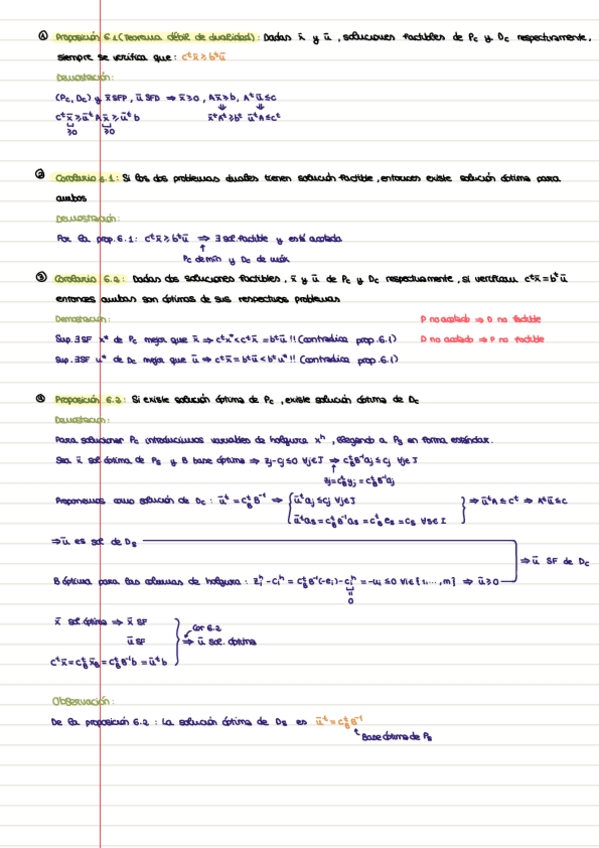 ① Proposición 6.1 (Teorema débil de dualidad): Dadas x̄ y ū, soluciones factibles de Pc y Dc respectivamente,
siempre se verifica que: cᵗx̄ ≥ bᵗū
Demostración:
(Pc, Dc) y x̄ SFP, ū SFD ⇒ x̄ ≥ 0, Ax̄ ≥ b, Aᵗū ≤ c
cᵗx̄ ≥ ūᵗAx̄ ≥ ūᵗb x̄ᵗAᵗ ≥ bᵗ ūᵗA ≤ cᵗ
≥0 ≥0
② Corolario 6.1: Si los dos problemas duales tienen solución factible, entonces existe solución óptima para
ambos
Demostración:
Por la prop. 6.1: cᵗx̄ ≥ bᵗū ⇒ ∃ sol. factible y está acotada
Pc de mín y Dc de máx
③ Corolario 6.2: Dadas dos soluciones factibles, x̄ y ū de Pc y Dc respectivamente, si verifican cᵗx̄ = bᵗū
entonces ambas son óptimas de sus respectivos problemas
Demostración: P no acotado ⇒ D no factible
Sup. ∃SF x* de Pc mejor que x̄ ⇒ cᵗx* < cᵗx̄ = bᵗū !! (contradice prop. 6.1) D no acotado ⇒ P no factible
Sup. ∃SF u* de Dc mejor que ū ⇒ cᵗx̄ = bᵗū < bᵗu* !! (contradice prop. 6.1)
④ Proposición 6.2: Si existe solución óptima de Pc, existe solución óptima de Dc
Demostración:
Para solucionar Pc introducimos variables de holgura xʰ, llegando a Ps en forma estándar.
Sea x̄ sol. óptima de Ps y B base óptima ⇒ zj-cj ≤ 0 ∀j∈J ⇒ c_Bᵗ B⁻¹aj ≤ cj ∀j∈J
zj = c_Bᵗ yj = c_Bᵗ B⁻¹aj
Proponemos como solución de Dc: ūᵗ = c_Bᵗ B⁻¹ ⇒ { ūᵗaj ≤ cj ∀j∈J ⇒ ūᵗA ≤ cᵗ ⇒ Aᵗū ≤ c
ūᵗas = c_Bᵗ B⁻¹as = c_Bᵗ es = cs ∀s∈I
⇒ ū es sol. de Ds
⇒ ū SF de Dc
B óptima para las columnas de holgura: zᵢʰ - cᵢʰ = c_Bᵗ B⁻¹(-eᵢ) - cᵢʰ = -uᵢ ≤ 0 ∀i∈{1,...,m} ⇒ ū ≥ 0
0
x̄ sol. óptima ⇒ x̄ SF
Cor 6.2
ū SF ⇒ ū sol. óptima
cᵗx̄ = c_Bᵗ x̄_B = c_Bᵗ B⁻¹b = ūᵗb
Observación:
De la proposición 6.2: La solución óptima de Ds es ūᵗ = c_Bᵗ B⁻¹
Base óptima de Ps